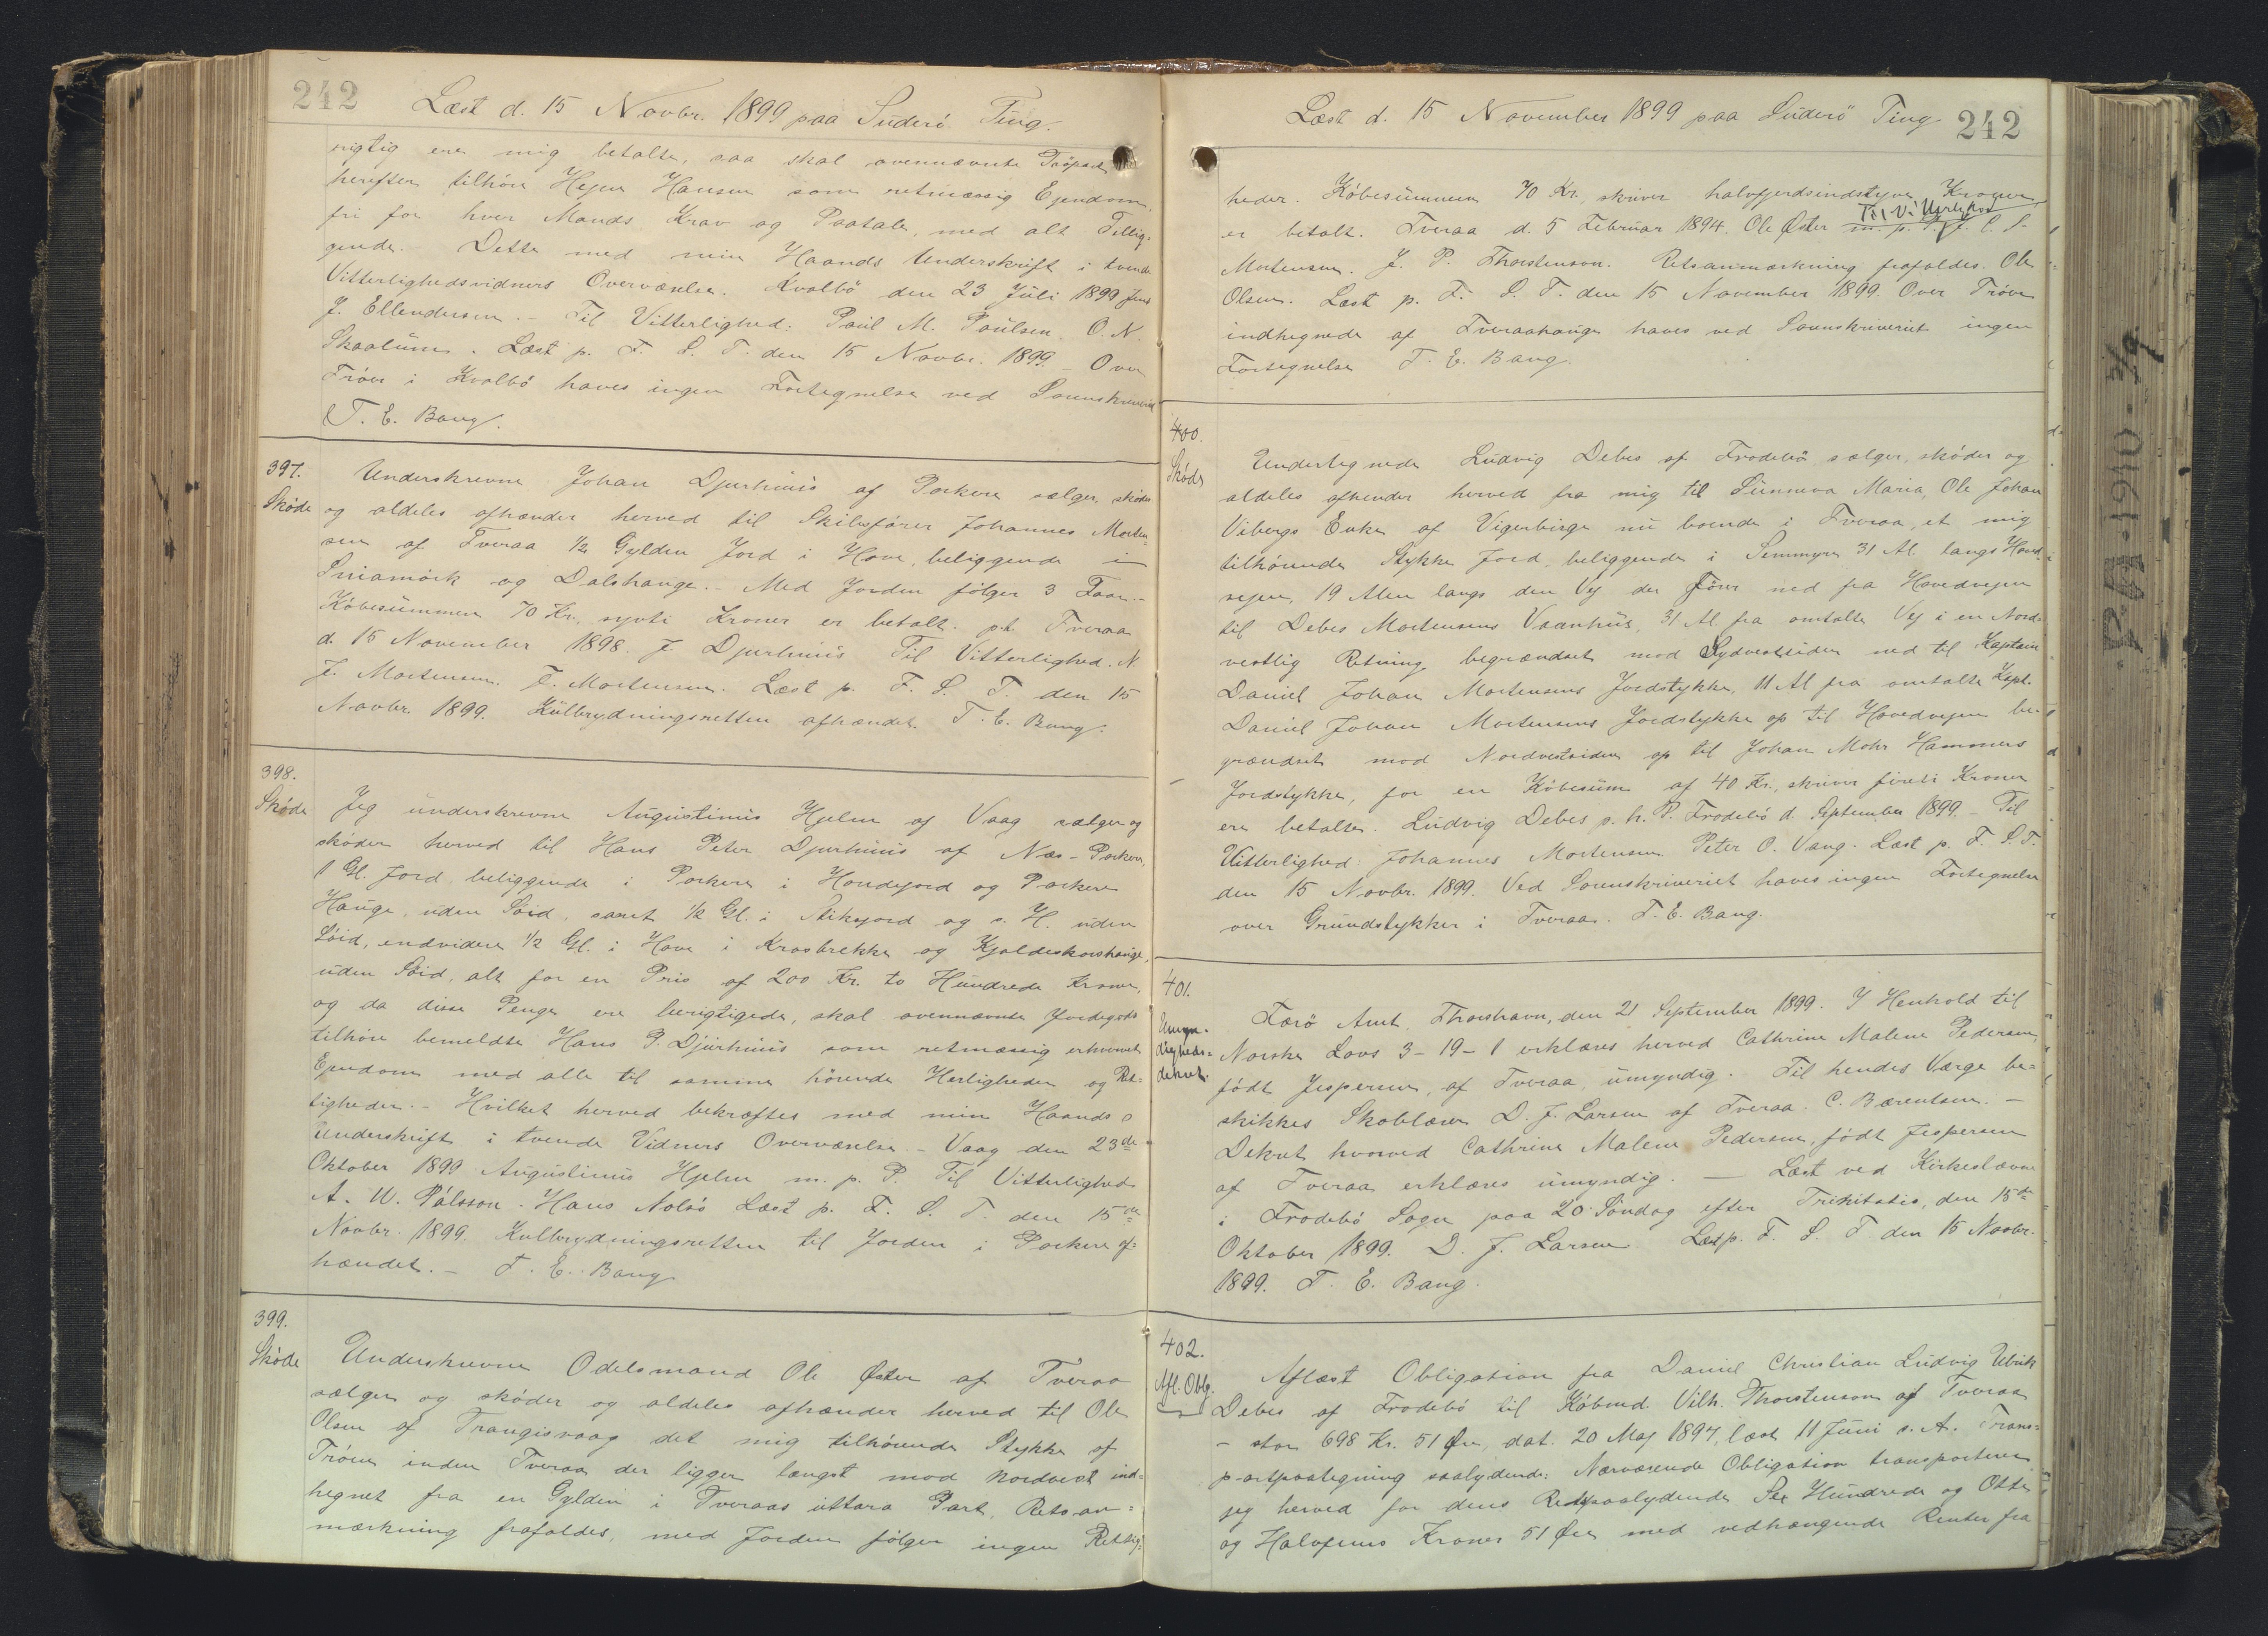 242
Læst d. 15 Novbr. 1899 paa Suderö Ting.
rigtig ere mig betalte, saa skal ovennævnte Tröpart
herefter tilhöre Hejne Hansen som retmæssig Ejendom,
fri for hver Mands Krav og Paatale, med alt Tillig-
gende. - Dette med min Haands Underskrift i tvende
Vitterlighedsvidners Overværelse. Kvalbö den 23 Juli 1899 Jens
J. Ellendersen. - Til Vitterlighed: Poul M. Poulsen. O. N.
Skaalum. Læst p. F. S. T. den 15 Novbr. 1899. - Over
Tröer i Kvalbö haves ingen Fortegnelse ved Sorenskriveriet
T. E. Bang.
397.
Skøde
Underskrevne Johan Djurhuus af Porkere sælger, skøder
og aldeles afhænder herved til Skibsfører Johannes Morten-
sen af Tveraa 1/2 Gylden Jord i Hove, beliggende i
Sniamörk og Dalshauge. - Med Jorden følger 3 Faar. -
Købesummen 70 Kr., syvti Kroner er betalt. p.t. Tveraa
d. 15 November 1898. J. Djurhuus Til Vitterlighed. N.
J. Mortensen. T. Mortensen. Læst p. F. S. T. den 15
Novbr. 1899. Kulbrydningsretten afhændet. T. E. Bang.
398.
Skøde
Jeg underskrevne Augustinus Hjelm af Vaag sælger og
skøder herved til Hans Peter Djurhuus af Næs - Porkere,
1 Gl. Jord, beliggende i Porkere i Hondejord og Porkere
Hauge, uden Söid, samt 1/2 Gl. i Stiksjord og s. H. uden
Söid, endvidere 1/2 Gl. i Hove i Krosbrekke og Kjoldeskorshauge,
uden Söid, alt for en Pris af 200 Kr. to Hundrede Kroner,
og da disse Penge ere berigtigede, skal ovennævnte Jordegods
tilhöre bemeldte Hans P. Djurhuus som retmæssig erhvervet
Ejendom med alle til samme hörende Herligheder og Ret-
tigheder. - Hvilket herved bekræftes med min Haands
Underskrift i tvende Vidners Overværelse. - Vaag den 23de
Oktober 1899 Augustinus Hjelm m. p. P. Til Vitterlighed
A. W. Pálsson. Hans Nolsö Læst p. F. S. T. den 15de
Novbr. 1899. Kulbrydningsretten til Jorden i Porkere af-
hændet. - T. E. Bang
399.
Skøde
Underskrevne Odelsmand Ole Øster af Tveraa
sælger og skøder og aldeles afhænder herved til Ole
Olsen af Trangisvaag det mig tilhörende Stykke af
Tröen inden Tveraa der ligger længst mod nordvest ind-
hegnet fra en Gylden i Tveraas uttara Part, Rets an-
mærkning frafaldes, med Jorden følger ingen Rettig-
Læst d. 15 November 1899 paa Suderö Ting
242
heder. Købesummen 70 Kr., skriver halvfjerdsindstyve Kroner,
Til Vitterlighed
er betalt. Tveraa d. 5 Februar 1894. Ole Øster m. p. P. J. C. S.
Mortensen. J. P. Thorstenson. Retsanmærkning frafaldes. Ole
Olsen. Læst p. F. S. T. den 15 November 1899. Over Tröer
indhegnede af Tveraahauge haves ved Sorenskriveriet ingen
Fortegnelse T. E. Bang.
400.
Skøde
Undertegnede Ludvig Debes af Frodebö sælger, skøder og
aldeles afhender herved fra mig til Sunneva Maria, Ole Johan
Vibergs Enke af Vigerbirge nu boende i Tveraa, et mig
tilhörende Stykke Jord, beliggende i Semmyre 31 Al. langs Hoved-
vejen, 19 Alen langs den Vej der förer ned fra Hovedvejen
til Debes Mortensens Vaanhus, 31 Al. fra omtalte Vej i en Nord-
vestlig Retning begrændset mod Sydvestsiden ned til Kaptain
Daniel Johan Mortensens Jordstykke, 11 Al fra omtalte Kapt.
Daniel Johan Mortensens Jordstykke op til Hovedvejen be-
grændset mod Nordvestsiden op til Johan Mohr Hammers
Jordstykke, for en Købesum af 40 Kr., skriver fireti Kroner
ere betalte. Ludvig Debes p. h. P. Frodebö d. September 1899. - Til
Vitterlighed: Johannes Mortensen. Peter O. Vang. Læst p. F. S. T.
den 15 Novbr. 1899. Ved Sorenskriveriet haves ingen Fortegnelse
over Grundstykker i Tveraa. T. E. Bang.
401.
Umyn-
digheds-
dekret.
Færö Amt, Thorshavn, den 21 September 1899. I Henhold til
Norske Lovs 3-19-1 erklæres herved Cathrine Malene Pedersen,
födt Jespersen, af Tveraa, umyndig. Til hendes Værge be-
skikkes Skolelærer D. J. Larsen af Tveraa. C. Bærentsen. -
Dekret hvorved Cathrine Malene Pedersen, födt Jespersen
af Tveraa erklæres umyndig. - Læst ved Kirkestævne
i Frodebö Sogn paa 20 Söndag efter Trinitatis, den 15de
Oktober 1899. D. J. Larsen Læst p. F. S. T. den 15 Novbr.
1899. T. E. Bang.
402.
Afl. Oblg.
Aflæst Obligation fra Daniel Christian Ludvig Ulrik
Debes af Frodebö til Købmd. Vilh. Thorstenson af Tveraa
- stor 698 Kr. 51 Øre, dat. 20 Maj 1897, læst 11 Juni s. A. Trans-
portpaategning saalydende: Nærværende Obligation transporterer
jeg herved for dens Restpaalydende Sex Hundrede og Otte
og Halvfems Kroner 51 Øre med vedhængende Renter fra